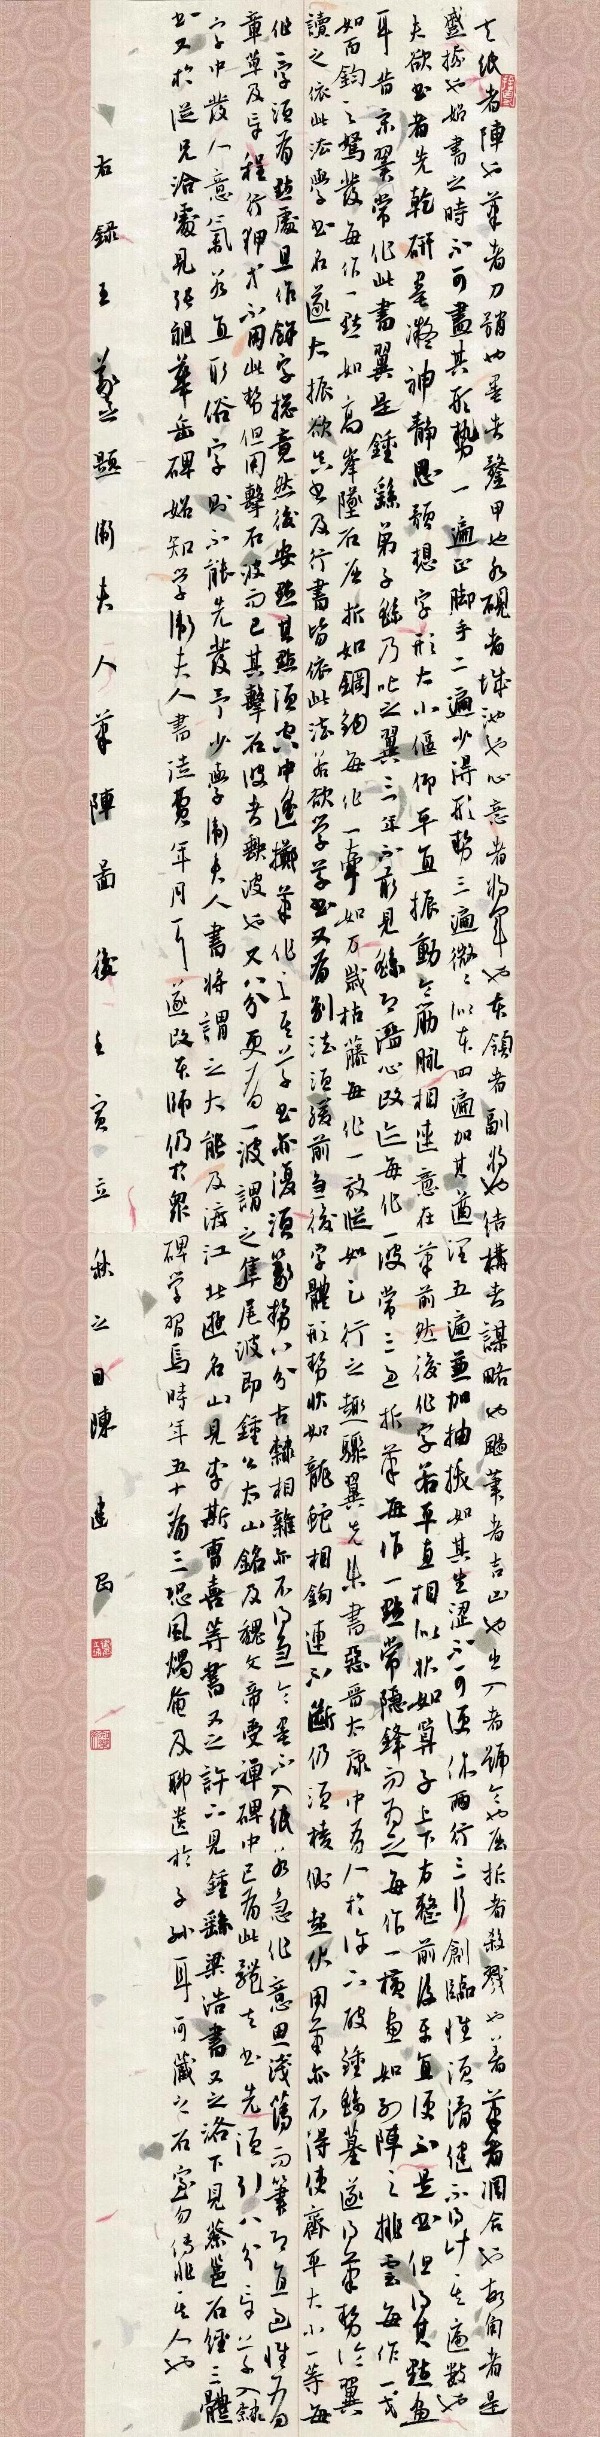 夫纸者陣也筆者刀鞘也墨者鍪甲也水硯者城池也心意者將軍也本領者副將也結構者謀略也颺筆者吉凶也出入者號令也屈折者殺戮也著筆者調合也頓角者是
蹙捺也始書之時不可盡其形勢一遍正腳手二遍少得形勢三遍微微似本四遍加其遒潤五遍兼加抽拔如其生澀不可便休兩行三行創臨惟須滑健不得計其遍數也
夫欲書者先乾研墨凝神靜思預想字形大小偃仰平直振動令筋脈相連意在筆前然後作字若平直相似狀如算子上下方整前後平直便不是書但得其點畫
耳昔宋翼常作此書翼是鍾繇弟子繇乃叱之翼三年不敢見繇即潛心改迹每作一波常三過折筆每作一點常隱鋒而為之每作一橫畫如列陣之排雲每作一戈
如百鈞之弩發每作一點如高峯墜石屈折如鋼鉤每作一牽如万歲枯藤每作一放縱如足行之趣驟翼先來書惡晉太康中有人於許下破鍾繇墓遂得筆勢論翼
讀之依此法學書名遂大振欲真書及行書皆依此法若欲学草書又有別法須緩前急後字體形勢狀如龍蛇相鉤連不斷仍須棱側起伏用筆亦不得使齊平大小一等每
作一字須有點處且作餘字總竟然後安點其點須空中遙擲筆作之其草書亦復須篆勢八分古隸相雜亦不得急令墨不入紙若急作意思淺薄而筆即直過惟有
章草及章程行狎等不用此勢但用擊石波而已其擊石波者缺波也又八分更有一波謂之隼尾波即鍾公太山銘及魏文帝受禪碑中已有此體夫書先須引八分章草入隸
字中發人意氣若直取俗字則不能先發予少學衛夫人書將謂之大能及渡江北遊名山見李斯曹喜等書又之許下見鍾繇梁浩書又之洛下見蔡邕石經三體
書又於從兄洽處見張昶華岳碑始知学衛夫人書徒費年月耳遂改本師仍於眾碑学習焉時年五十有三恐風燭奄及聊遺於子孫耳可藏之石室勿傳非其人也
右錄王羲之題衛夫人筆陣圖後壬寅立秋之日陳建